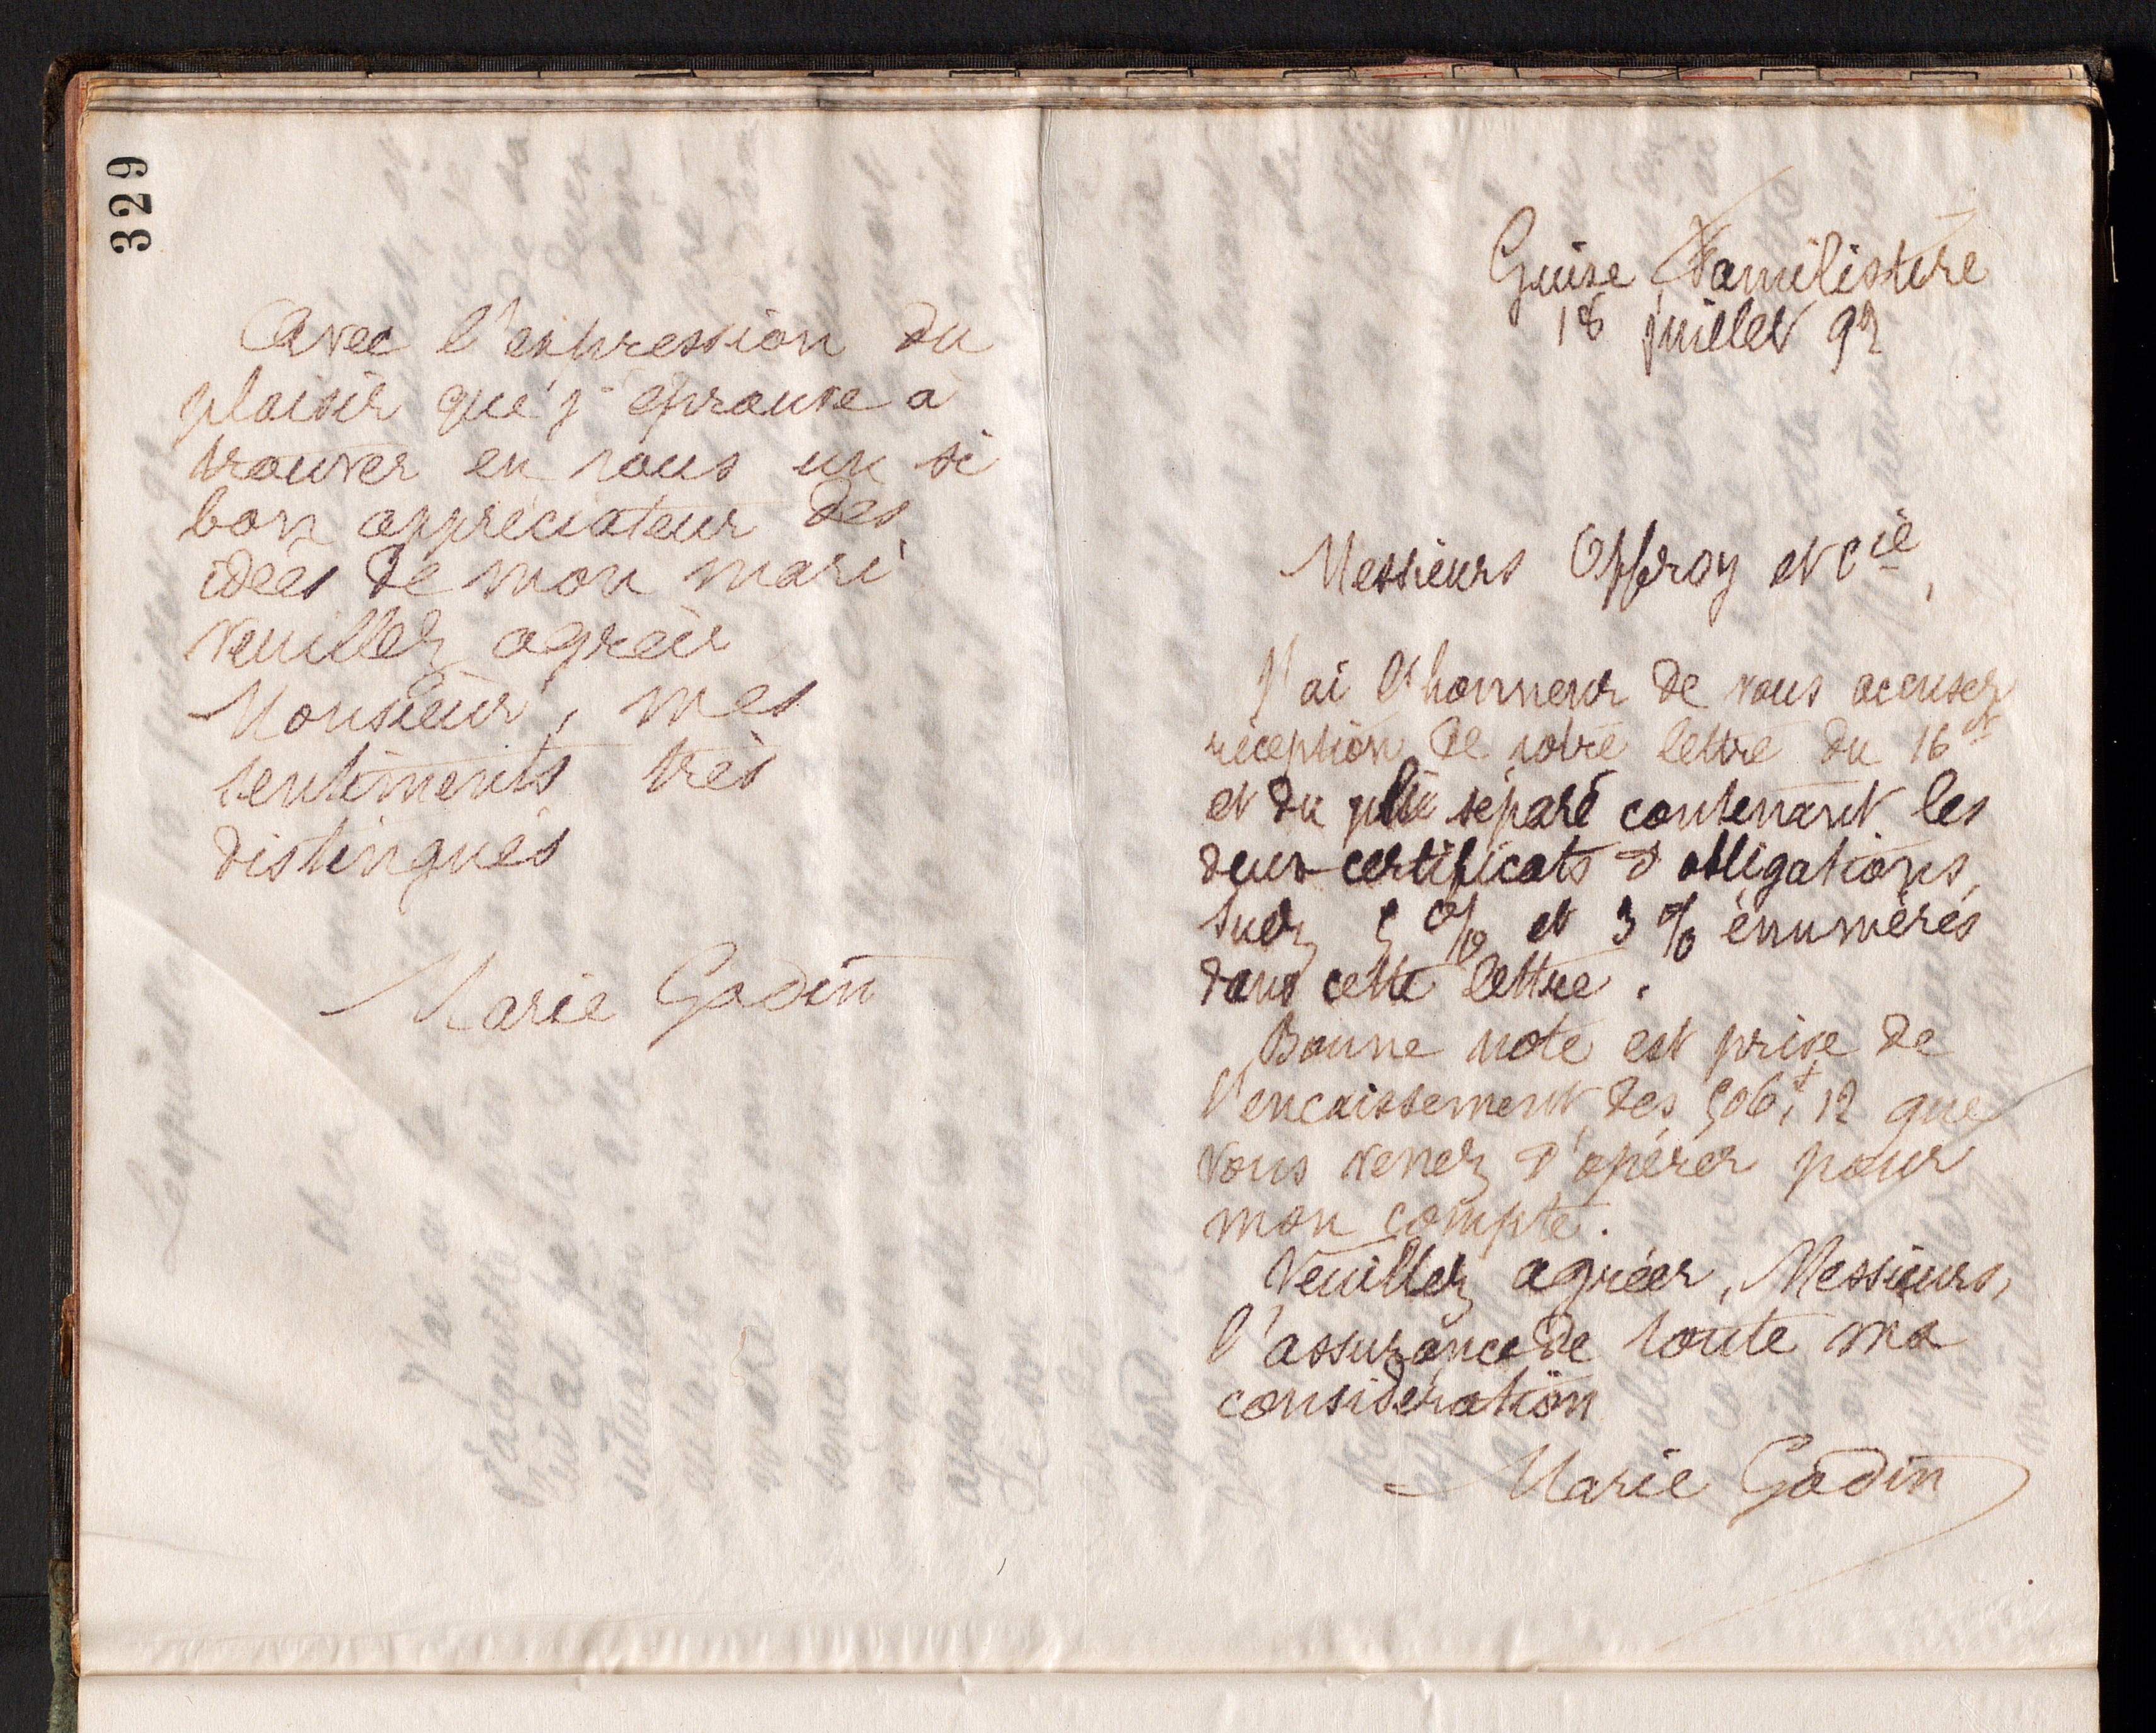 329
Avec l'expression du
plaisir que j'éprouve à
trouver en vous un si
bon appréciateur des
idées de mon mari
veuillez agréer
Monsieur, mes
sentiments très
distingués
Marie Godin
Guise Familistère
18 juillet 92
Messieurs Offroy et Cie,
J'ai l'honneur de vous accuser
réception de votre lettre du 16 ct
et du pli séparé contenant les
deux certificats d'obligations,
Suez 5 % et 3 % énumérés
dans cette lettre.
Bonne note est prise de
l'encaissement des 506f,12 que
vous venez d'opérer pour
mon compte.
Veuillez agréer, Messieurs,
l'assurance de toute ma
considération
Marie Godin